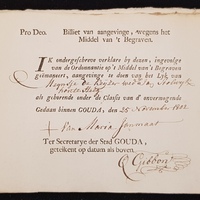 Pro Deo. Billiet van aangevinge, wegens het
Middel van 't Begraven.
IK ondergeschreve verklare by dezen, ingevolge
van de Ordonnantie op 't Middel van 't Begraven
geëmaneert, aangevinge te dien van het Lyk van
als gehoorende onder de Classis van d' onvermogende
Gedaan binnen GOUDA, den 25 November 1802
Maria
Ter Secretarye der Stad GOUDA,
geteikent op datum als boven.